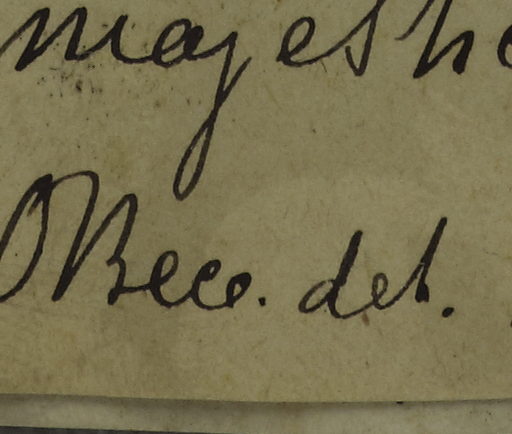 majesti
OBecc. det.